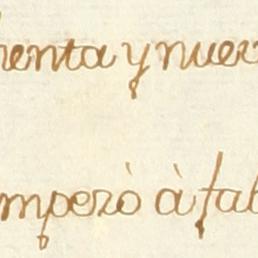 renta y nuev
mpezò à fal